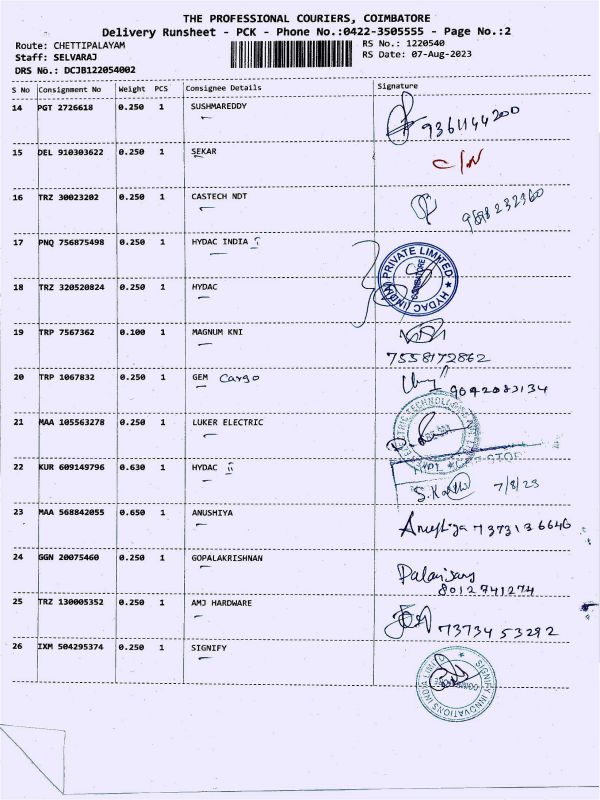 THE PROFESSIONAL COURIERS, COIMBATORE
Delivery Runsheet - PCK - Phone No.:0422-3505555 - Page No.:2
Route: CHETTIPALAYAM RS No.: 1220540
Staff: SELVARAJ RS Date: 07-Aug-2023
DRS No.: DCJB122054002
S No Consignment No Weight PCS Consignee Details Signature
14 PGT 2726618 0.250 1 SUSHMAREDDY 9361144200
15 DEL 910303622 0.250 1 SEKAR C/N
16 TRZ 30023202 0.250 1 CASTECH NDT
17 PNQ 756875498 0.250 1 HYDAC INDIA
HYDAC (INDIA) PRIVATE LIMITED
COIMBATORE
18 TRZ 320520824 0.250 1 HYDAC
19 TRP 7567362 0.100 1 MAGNUM KNI
7558172862
20 TRP 1067832 0.250 1 GEM Cargo 9042083134
21 MAA 105563278 0.250 1 LUKER ELECTRIC
22 KUR 609149796 0.630 1 HYDAC 7/8/23
23 MAA 568842055 0.650 1 ANUSHIYA 7373136646
24 GGN 20075460 0.250 1 GOPALAKRISHNAN
8012741274
25 TRZ 130005352 0.250 1 AMJ HARDWARE 7373453292
26 IXM 504295374 0.250 1 SIGNIFY
SIGNIFY INNOVATIONS INDIA LIMITED